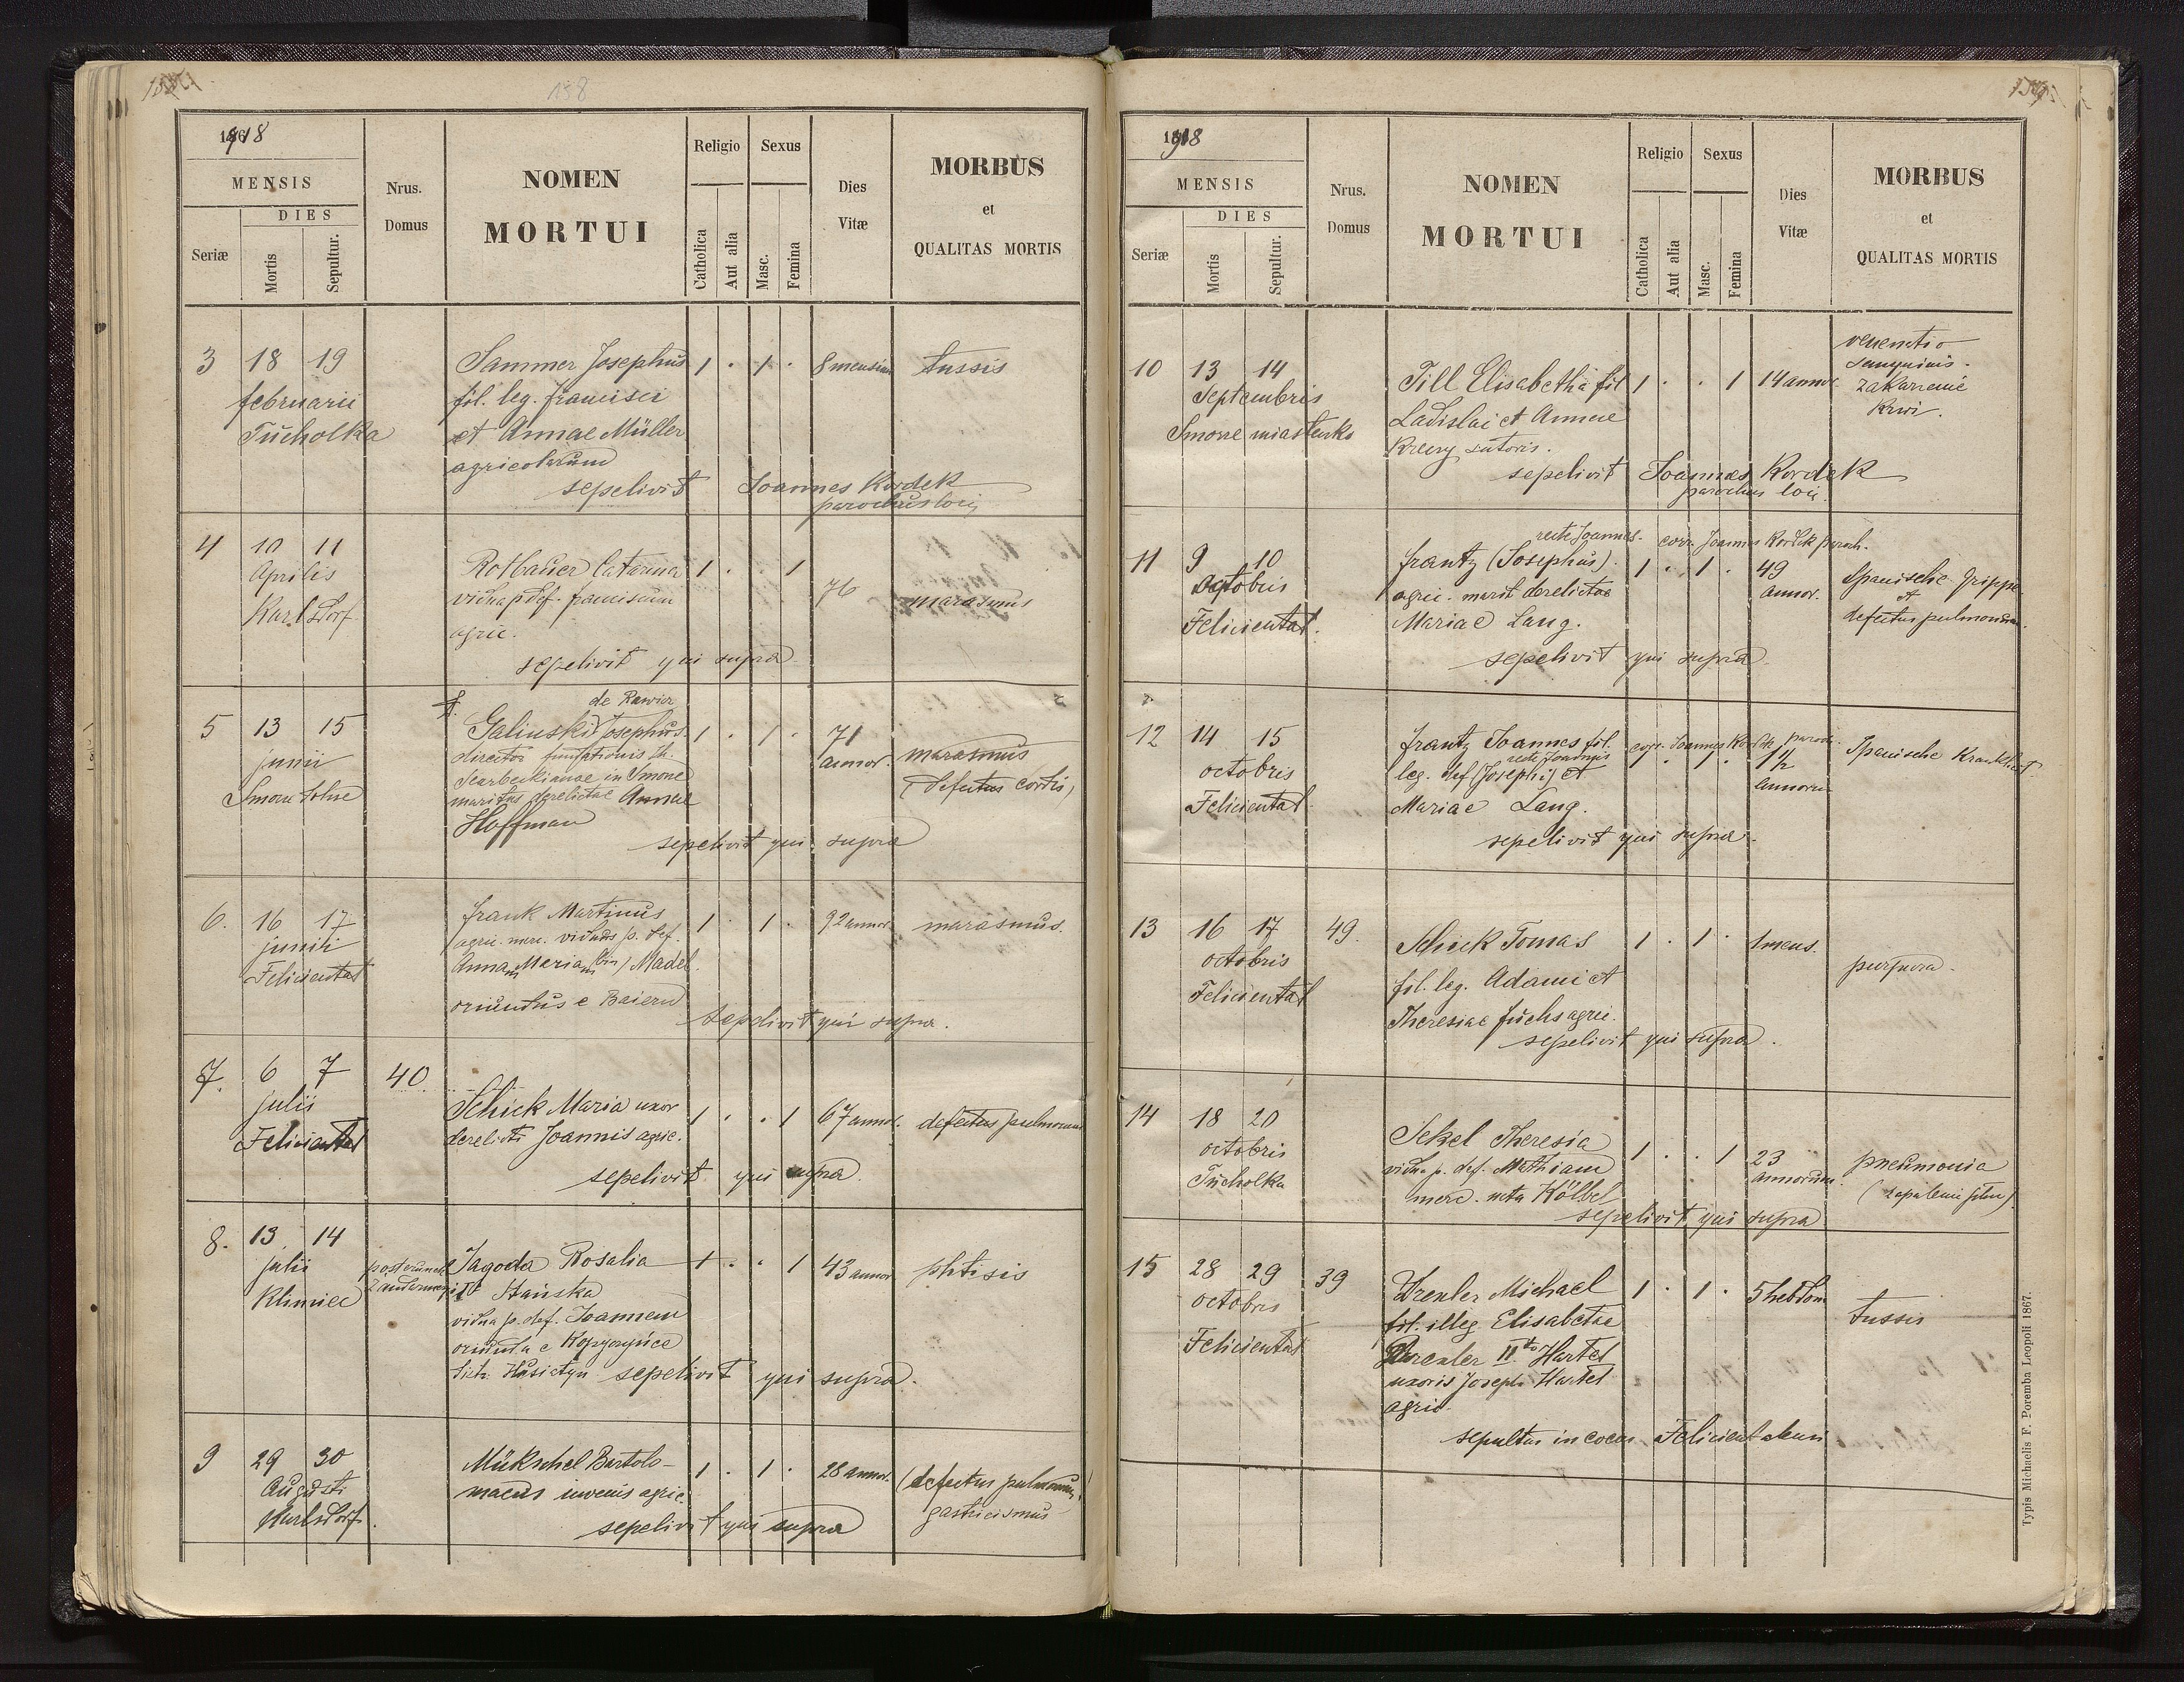 158
1918
MENSIS
DIES
Seriæ
Mortis
Sepultur.
Nrus.
Domus
NOMEN
MORTUI
Religio
Catholica
Aut alia
Sexus
Masc.
Femina
Dies
Vitæ
MORBUS
et
QUALITAS MORTIS
3 18 19
februarii
Tucholka
Sammer Josephus
fil. leg. francisci
et Annae Müller
agricolarum
1 . 1 . 8 mensium tussis
sepelivit Joannes Kordek
parochus loci
4 10 11
Aprilis
Karlsdorf
Rotbauer Catarina
vidua p. def. franciscum
agric.
1 . . 1 76 marasmus
sepelivit qui supra
5 13 15
junii
Smorze dolne
de Rawicz
Galinski Josephus
director fundationis
Skarbekianae in Smorze
maritus derelictae Annae
Hoffman
1 . 1 . 71
annor. marasmus
(defectus cordis)
sepelivit qui supra
6. 16 17
junii
Felicientat
frank Martinus
agric. merc. viduus p. def.
Annam Mariam (bin) Madel
oriundus e Baiern
1 . 1 . 92 annor. marasmus.
sepelivit qui supra.
7. 6 7 40
julii
Felicientat
Schick Maria uxor
derelicti Joannis agric.
1 . . 1 67 annor. defectus pulmonum
sepelivit qui supra
8. 13 14
julii
Klimiec
posterunek
żandarmeryi
Jagoda Rosalia
Hańska
vidua p. def. Joannem
oriunda e Kopyczyńce
distr. Husiatyn
1 . . 1 43 annor phtisis
sepelivit qui supra.
9 29 30
Augusti
Karlsdorf.
Mükschel Bartolo-
maeus iuvenis agric.
1 . 1 . 28 annor. (defectus pulmonum)
gastricismus
sepelivit qui supra
1918
MENSIS
DIES
Seriæ
Mortis
Sepultur.
Nrus.
Domus
NOMEN
MORTUI
Religio
Catholica
Aut alia
Sexus
Masc.
Femina
Dies
Vitæ
MORBUS
et
QUALITAS MORTIS
10 13 14
Septembris
Smorze miasteczko
Till Elisabetha fil
Ladislai et Annae
Kreczy sutoris.
1 . . 1 14 annor
venenatio
sanguinis.
zakażenie
krwi.
sepelivit Joannes Kordek
parochus loci.
recte Joannes. corr. Joannes Kordek paroch.
11 9 10
Octobris
Felicientat.
frantz (Josephus)
agric. marit. derelictae
Mariae Lang.
1 . 1 . 49
annor.
Spanische Grippe
et
defectus pulmonum.
sepelivit qui supra
12 14 15
octobris
Felicientat
frantz Joannes fil. corr. Joannes Kordek paroch.
recte Joannis
leg. def. (Josephi) et
Mariae Lang.
1 . 1 . 1½
annorum
Spanische Krankheit.
sepelivit qui supra.
13 16 17 49.
octobris
Felicientat
Schick Tomas
fil. leg. Adami et
Theresiae fuchs agric.
1 . 1 . 1 mens.
purpura.
sepelivit qui supra.
14 18 20
octobris
Tucholka
Sekel Theresia
vidua p. def. Mathiam
merc. nata Kölbel
1 . . 1 23
annorum.
pneumonia
(zapalenie płuc)
sepelivit qui supra
15 28 29 39
octobris
Felicientat
Drexler Michael
fil. illeg. Elisabetae
Drexler IIto Hartel
uxoris Josephi Hartel
agric.
1 . 1 . 5 hebdom
tussis
sepultus in coem. Felicientaleni
Typis Michaelis F. Poremba Leopoli 1867.